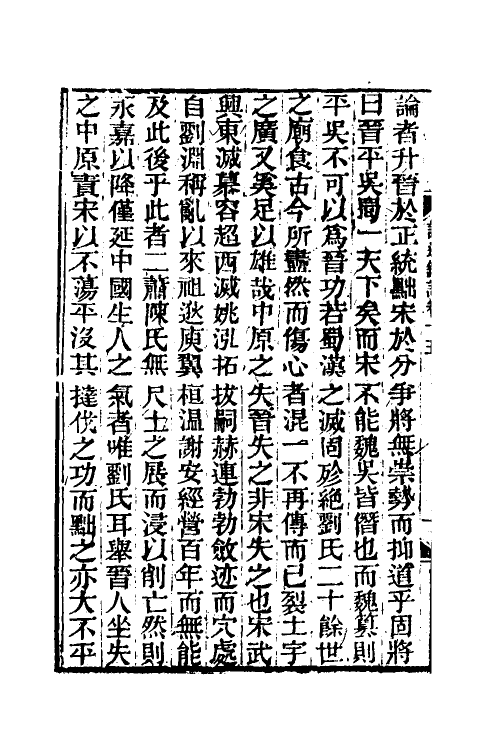 論者升晉於正統黜宋於分爭將無崇勢而抑道乎固將
曰晉平吳蜀一天下矣而宋不能魏吳皆僭也而魏篡則
平吳不可以爲晉功若蜀漢之滅固殄絕劉氏二十餘世
之廟食古今所衋然而傷心者混一不再傳而已裂土宇
之廣又奚足以雄哉中原之失晉失之非宋失之也宋武
興東滅慕容超西滅姚泓拓拔嗣赫連勃勃斂迹而穴處
自劉淵稱亂以來祖逖庾翼桓溫謝安經營百年而無能
及此後乎此者二蕭陳氏無尺土之展而浸以削亡然則
永嘉以降僅延中國生人之氣者唯劉氏耳舉晉人坐失
之中原責宋以不蕩平沒其撻伐之功而黜之亦大不平